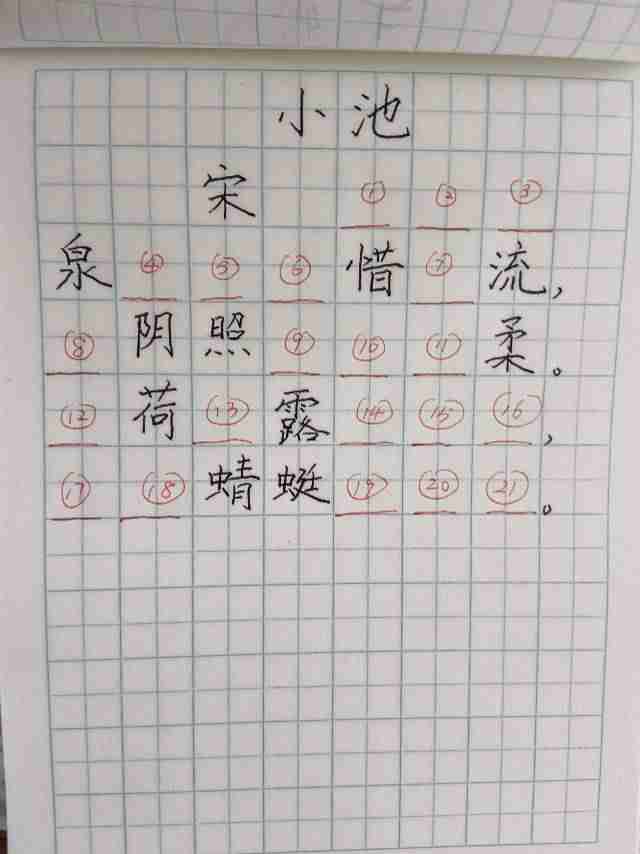 小池
宋 ① ② ③
泉 ④ ⑤ ⑥ 惜 ⑦ 流,
⑧ 阴照 ⑨ ⑩ ⑪ 柔。
⑫ 荷 ⑬ 露 ⑭ ⑮ ⑯,
⑰ ⑱ 蜻蜓 ⑲ ⑳ ㉑。